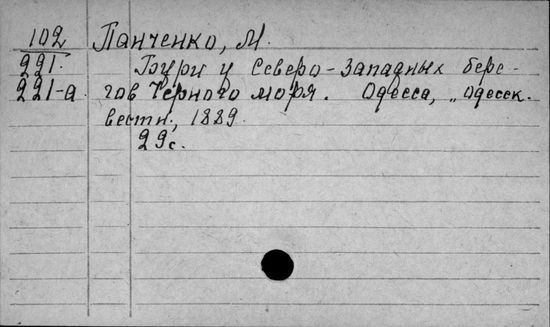 102 Панченко, М.
221. Бури у Северо-Западных бере-
221-а гов Черного моря. Одесса, „Одесск.
вестн., 1889.
29с.